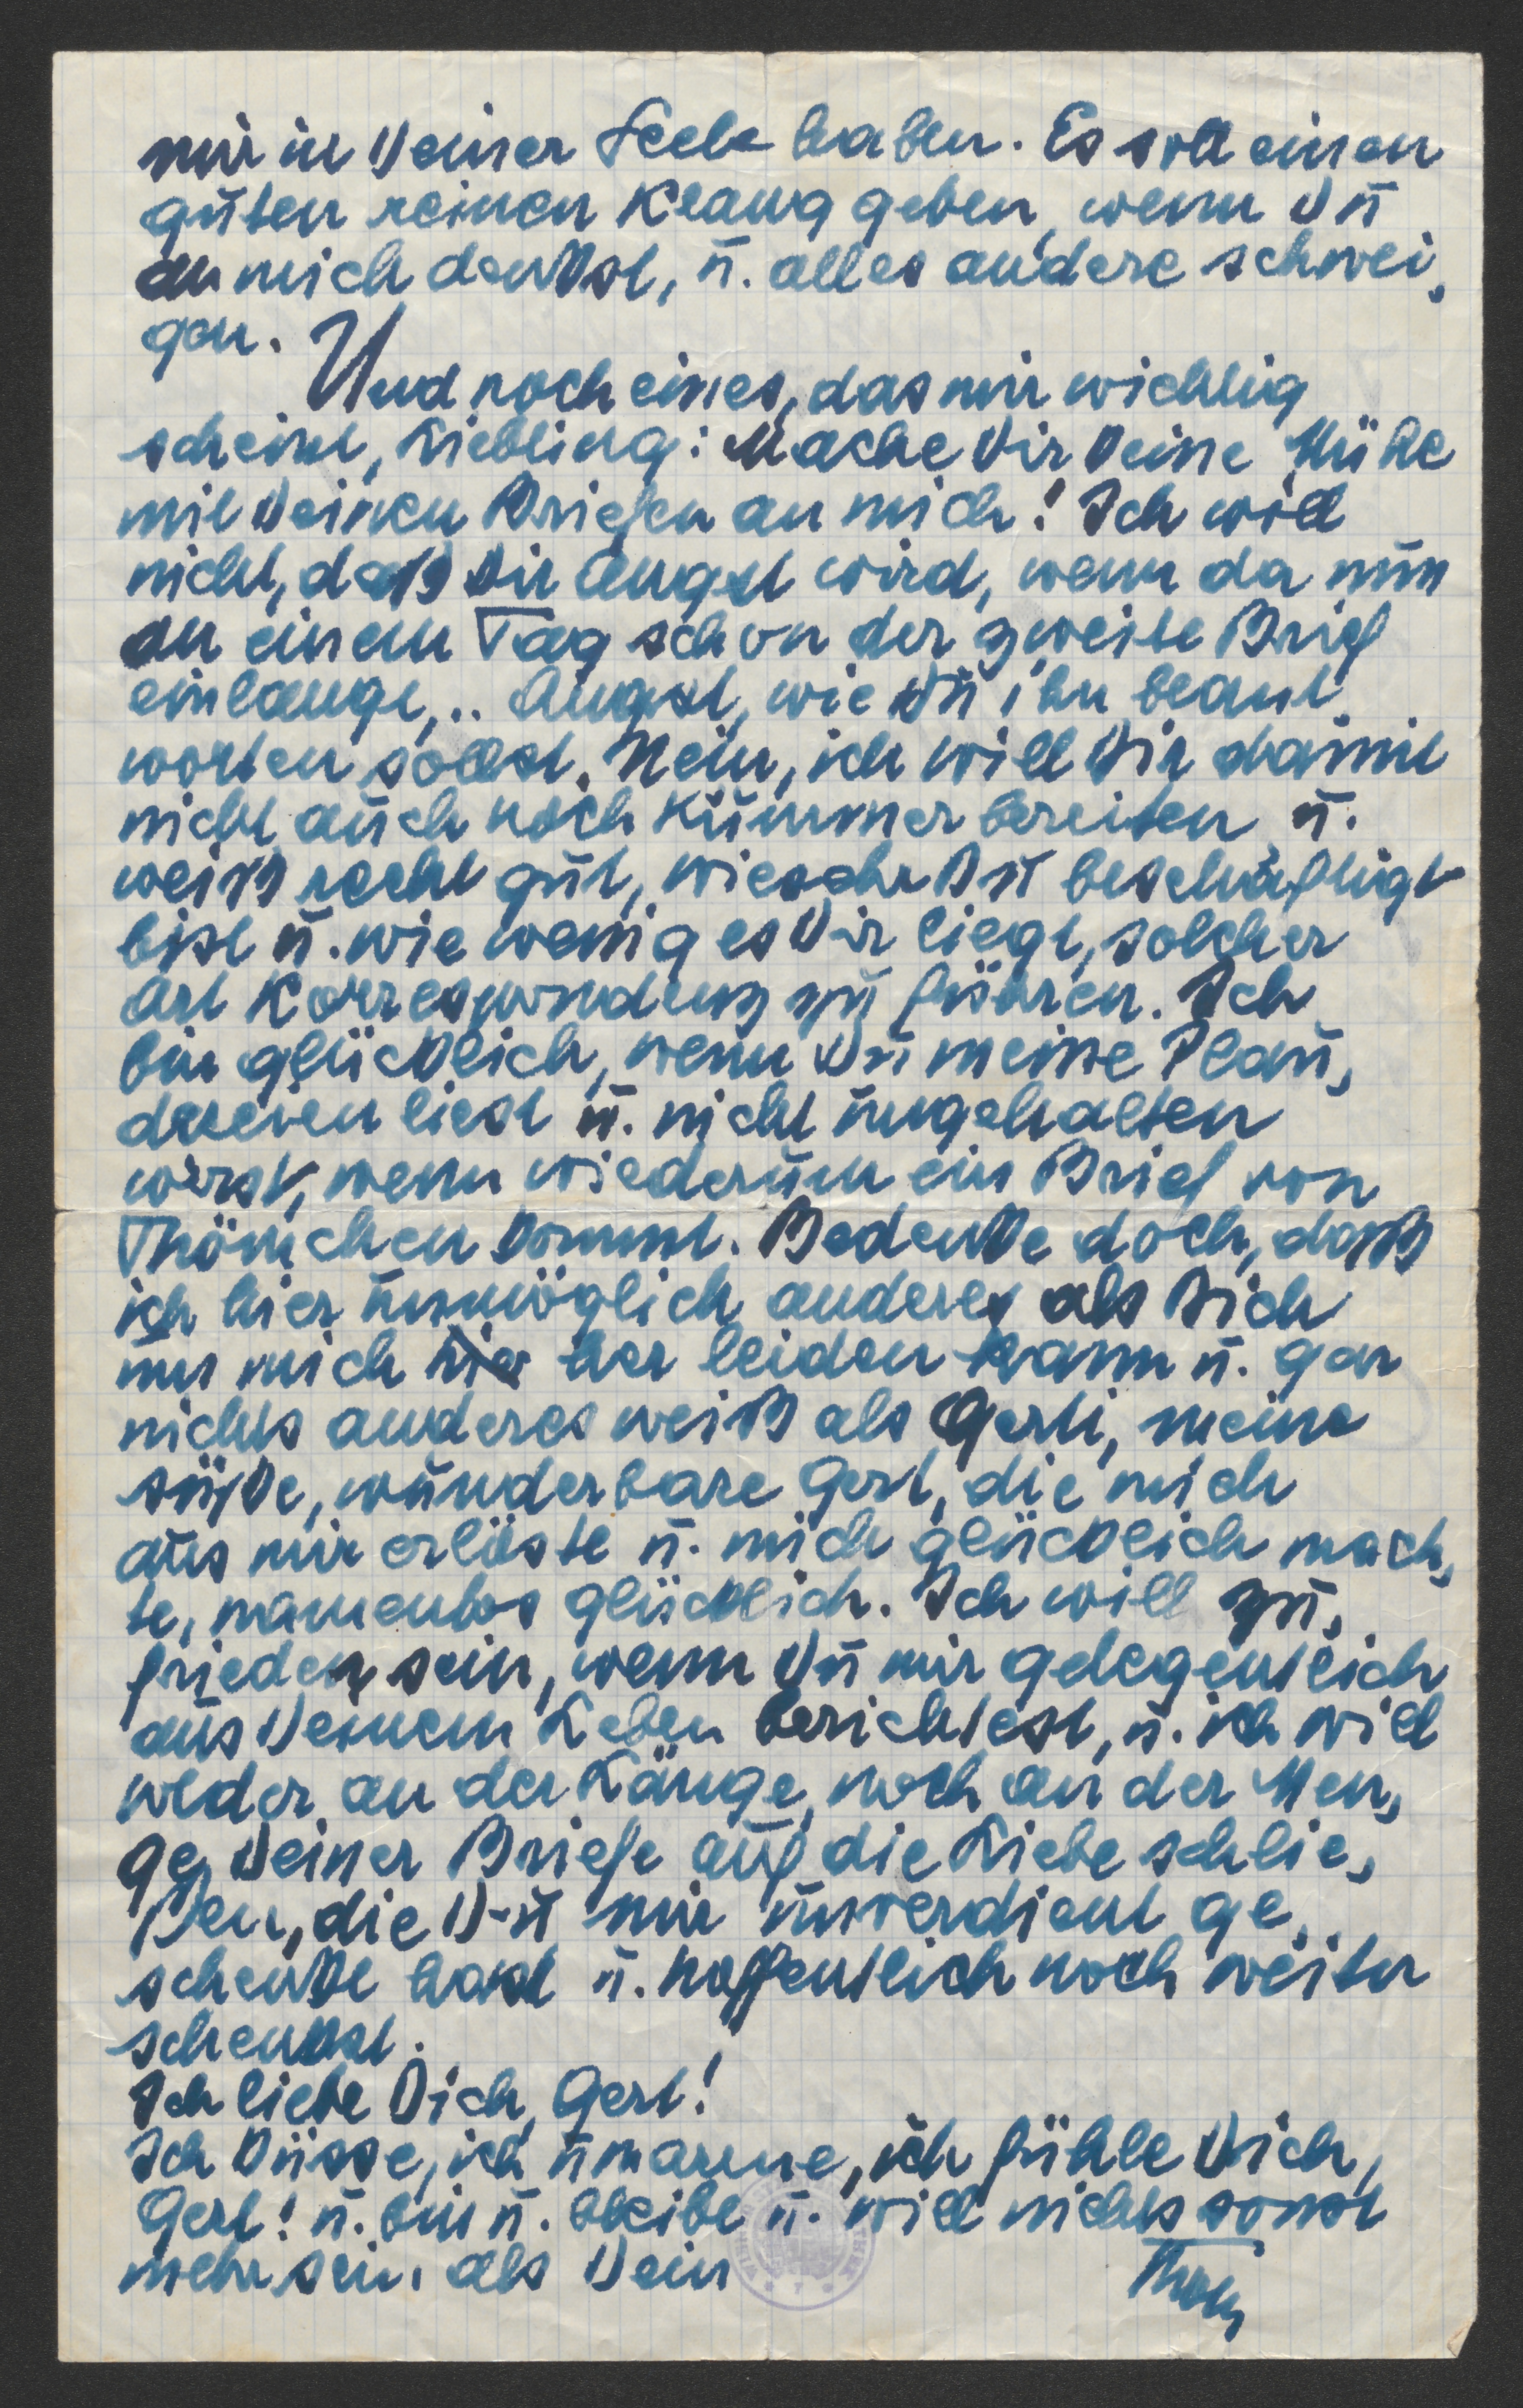 mir in Deiner Seele haben. Es soll einen
guten reinen Klang geben, wenn Du
an mich denkst, u. alles andere schwei-
gen.
Und noch eines, das mir wichtig
scheint, Liebling: Mache Dir keine Mühe
mit Deinen Briefen an mich! Ich will
nicht, daß Dir Angst wird, wenn da nun
an einem Tag schon der zweite Brief
einlangt,.. Angst, wie Du ihn beant-
worten sollst. Nein, ich will Dir damit
nicht auch noch Kummer bereiten u.
weiß recht gut, wiesehr Du beschäftigt
bist u. wie wenig es Dir liegt, solcher
Art Korrespondenz zu führen. Ich
bin glücklich, wenn Du meine Plau-
dereien liest u. nicht ungehalten
wirst, wenn wiederum ein Brief von
Thömchen kommt. Bedenke doch, daß
ich hier unmöglich anderes als Dich
um mich her leiden kann u. gar
nichts anderes weiß als Gerti, meine
süße, wunderbare Gert, die mich
aus mir erlöste u. mich glücklich mach-
te, namenlos glücklich. Ich will zu-
frieden sein, wenn Du mir gelegentlich
aus Deinem Leben berichtest, u. ich will
weder an der Länge, noch an der Men-
ge Deiner Briefe auf die Liebe schlie-
ßen, die Du mir unverdient ge-
schenkt hast u. hoffentlich noch weiter
schenkst.
Ich liebe Dich, Gert!
Ich küsse, ich umarme, ich fühle Dich,
Gert! u. bin u. bleibe u. will nichts sonst
mehr sein, als Dein
Thom